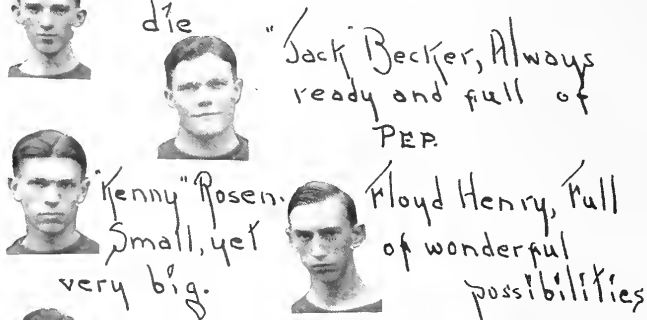 die
"Jack" Becker, Always
ready and full of
PEP.
"Kenny" Rosen.
Small, yet
very big.
Floyd Henry, Full
of wonderful
possibilities